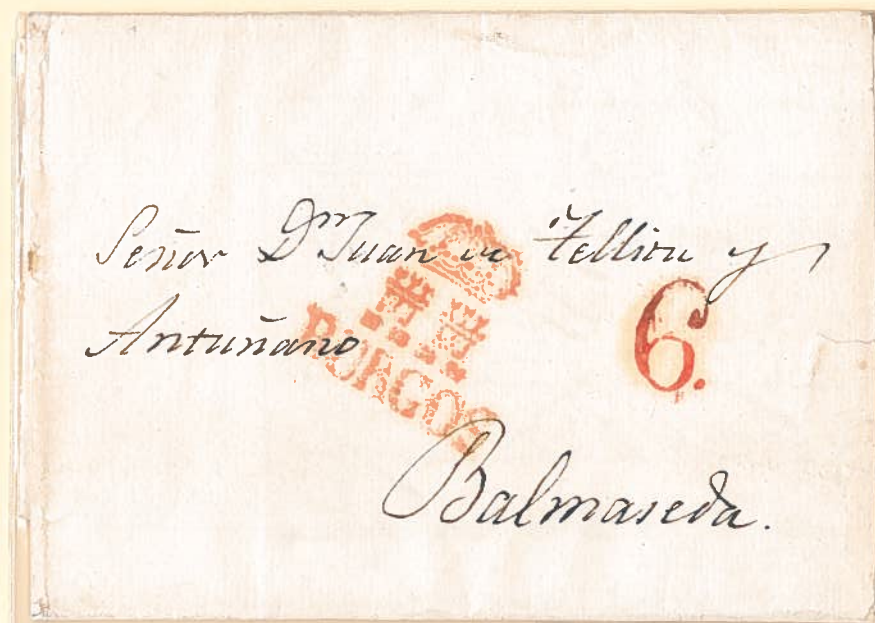 Señor Dⁿ Juan de Tellitu y
Antuñano
BURGOS
6.
Balmaseda.